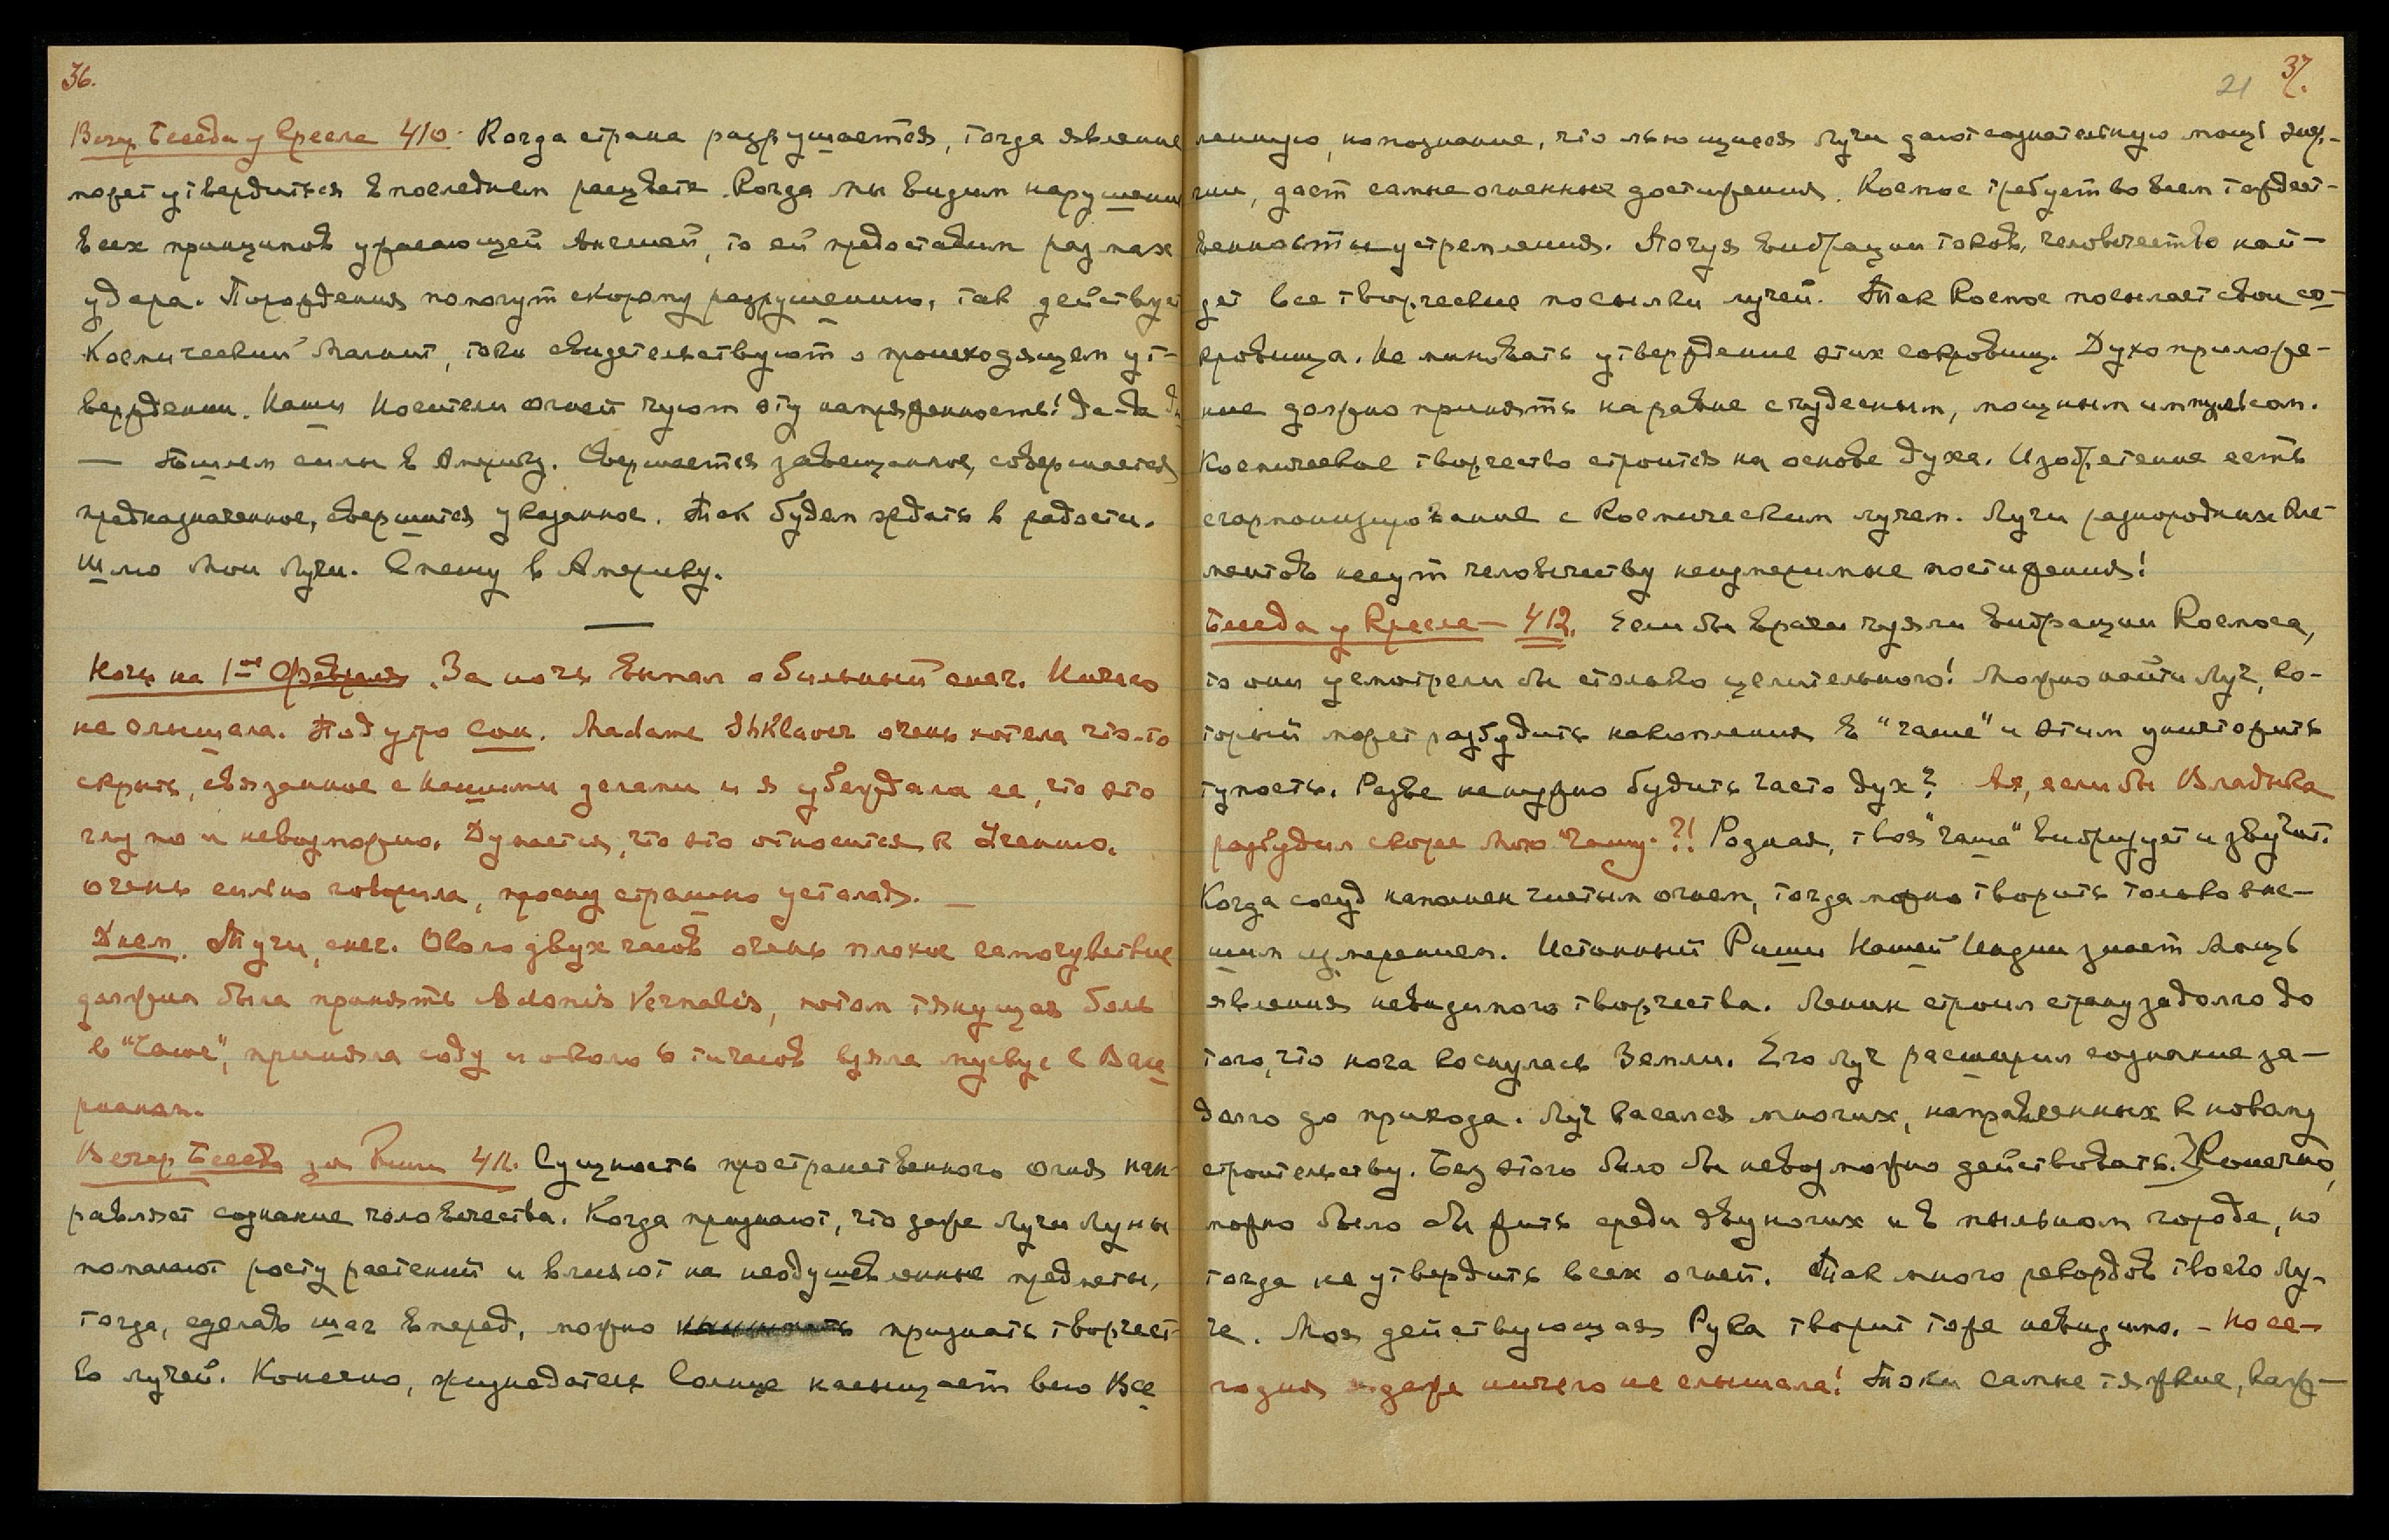 36.
Вечер Беседа у Кресла 410. Когда страна разрушается, тогда явление
может утвердиться в последнем расцвете. Когда мы видим нарушении
всех принципов ужасающей внешей, то ей предоставим размах
удара. Порождения помогут скорому разрушению, так действует
Космический Магнит, токи свидетельствуют о происходящем ут-
верждении. Наши Носители огней чуют эту напряженность! Да-да
— Пошлем силы в Америку. Свершается завещанное, совершается
предназначенное, свершится указанное. Так будем ждать в радости.
Шлю Мои Лучи. Спешу в Америку.
Ночь на 1ое Февраля. За ночь выпал обильный снег. Ничего
не слышала. Под утро сон. Madame очень хотела что-то
скрыть, связанное с нашими делами и я убеждала ее, что это
глупо и невозможно. Думается, что это относится к Учению.
очень сильно говорила, проснулась страшно усталая. —
Днем. Тучи, снег. Около двух часов очень плохое самочувствие
должна была принять Adonis Vernalis, потом тянущая боль
в "Чаше", приняла соду и около 6 ти часов взяла мускус с Вале
рианам.
Вечер Беседа 411. Сущность пространственного огня нап-
равляет сознание человечества. Когда признают, что даже Лучи Луны
помогают росту растений и влияют на неодушевленные предметы,
тогда, сделав шаг вперед, можно признать творчест-
во лучей. Конечно, жизнедатель Солнце насыщает всю Все
21 37.
ленную, но познание, что льющиеся Лучи дают сознательную мощь энер-
гии, дает самые огненные достижения. Космос требует во всем тождест-
венности устремления. Почуя вибрации токов, человечество най-
дет все творческие посылки лучей. Так Космос посылает свои со-
кровища. Не миновать утверждение этих сокровищ. Духоприложе-
ние должно принять наравне с чудесным, мощным импульсом.
Космическое творчество строится на основе духа. Изобретение есть
сгармонизирование с Космическим лучем. Лучи разнородных Эле-
ментов несут человечеству неизмеримые постижения!
Беседа у Кресла — 412. Если бы врачи чуяли вибрации Космоса,
то они усмотрели бы столько целительного! Можно найти Луч, ко-
торый может разбудить накопления в "чаше" и этим уничтожить
тупость. Разве не нужно будить часто дух? Ах, если бы Владыка
разбудил скорее мою "Чашу"?! Родная, твоя "чаша" вибрирует и звучит.
Когда сосуд наполнен чистым огнем, тогда можно творить только выс-
шим измерением. Истинный Риши Нашей Индии знает Мощь
явления невидимого творчества. Ленин строил страну задолго до
того, что нога коснулась Земли. Его Луч расширил сознание за-
долго до прихода. Луч касался многих, направленных к новому
строительству. Без этого было бы невозможно действовать.} Конечно,
можно было бы жить среди двуногих и в пыльном городе, но
тогда не утвердить всех огней. Так много рекордов твоего Лу-
ча. Моя действующая Рука творит тоже невидимо. — Но се-
годня даже ничего не слышала! Токи самые тяжкие, каж-